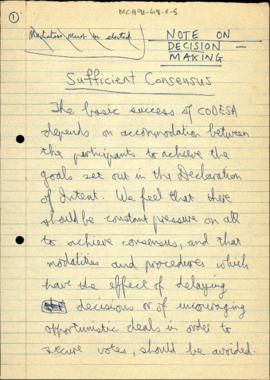 MCH91-68-6-5
1
must be elected
NOTE ON
DECISION -
MAKING
Sufficient Consensus
The basic success of CODESA
depends on accommodation between
the participants to achieve the
goals set out in the Declaration
of Intent. We feel that there
should be constant pressure on all
to achieve consensus, and that
modalities and procedures which
have the effect of delaying
decisions or of encouraging
opportunistic deals in order to
secure votes, should be avoided.